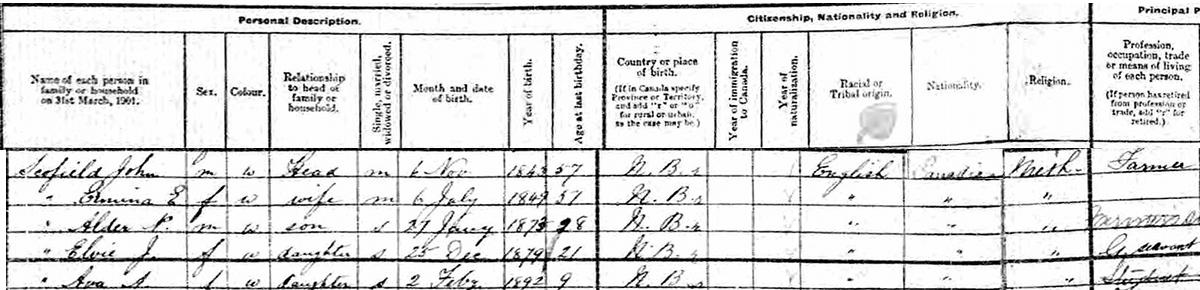 Personal Description. Citizenship, Nationality and Religion. Principal P
Name of each person in family or household on 31st March, 1901. Sex. Colour. Relationship to head of family or household. Single, married, widowed or divorced. Month and date of birth. Year of birth. Age at last birthday. Country or place of birth. (If in Canada specify Province or Territory, and add "r" or "u" for rural or urban as the case may be.) Year of immigration to Canada. Year of naturalization. Racial or Tribal origin. Nationality. Religion. Profession, occupation, trade or means of living of each person. (If person has retired from profession or trade, add "r" for retired.)
Scofield John m w Head m 6 Nov 1843 57 N. B. r English Canadian Meth. Farmer
" Ermina E f w wife m 6 July 1849 51 N. B. r " " "
" Alder P. m w son s 27 Jany 1873 28 N. B. r " " "
" Elvie J. f w daughter s 25 Dec 1879 21 N. B. r " " " servant
" Ava A. f w daughter s 2 Feby 1892 9 N. B. r " " " Student